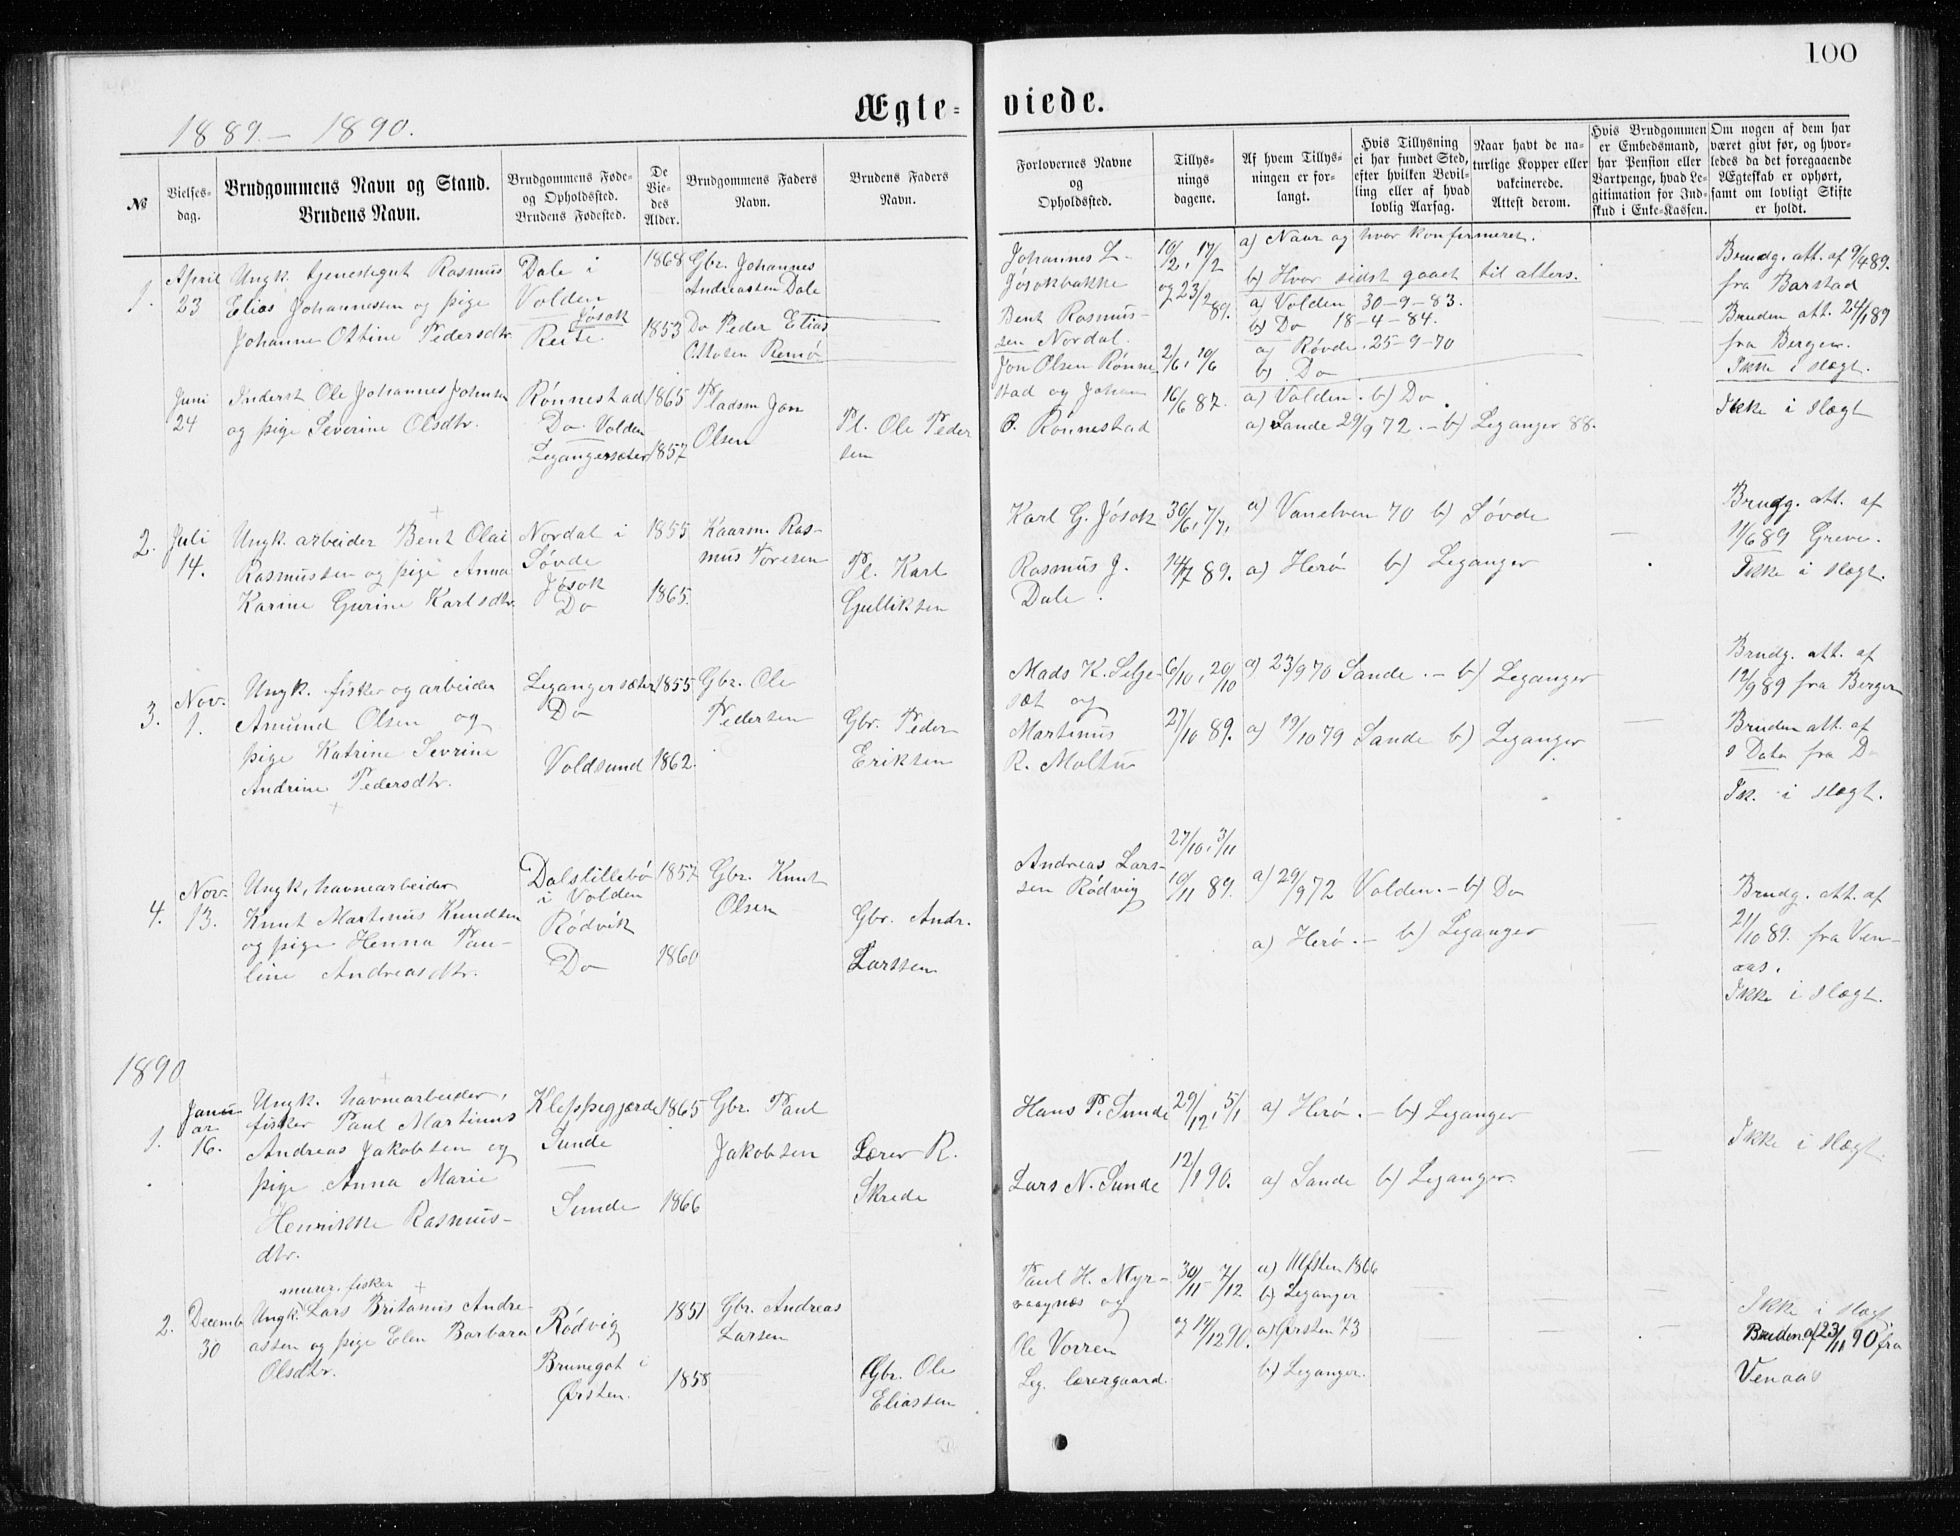 100
Ægte-
viede.
1889 – 1890.
№
Vielses-
dag.
Brudgommens Navn og Stand.
Brudens Navn.
Brudgommens Føde-
og Opholdssted.
Brudens Fødested.
De
Vie-
des
Alder.
Brudgommens Faders
Navn.
Brudens Faders
Navn.
Forlovernes Navne
og
Opholdssted.
Tillys-
nings
dagene.
Af hvem Tillys-
ningen er for-
langt.
Hvis Tillysning
ei har fundet Sted,
efter hvilken Bevil-
ling eller af hvad
lovlig Aarsag.
Naar havt de na-
turlige Kopper eller
vakcinerede.
Attest derom.
Hvis Brudgommen
er Embedsmand,
har Pension eller
Vartpenge, hvad Le-
gitimation for Ind-
skud i Enke-Kassen.
Om nogen af dem har
været givt før, og hvor-
ledes da det foregaaende
Ægteskab er ophørt,
samt om lovligt Skifte
er holdt.
1.
April
23
Ungk. tjenestegut Rasmus
Elias Johannessen og pige
Johanne Ottine Pedersdtr.
Dale i
Volden
Jøsok
Reite
1868
1853
Gbr. Johannes
Andreassen Dale
Do Peder Elias
Ottosen Remø
Johannes L-
Jøsokbakke
Bent Rasmus-
sen Nordal.
10/2, 17/2
og 23/2 89.
a) Naar og hvor konfirmeret.
b) Hvor sidst gaaet til alters.
a) Volden 30-9-83.
b) Do 18-4-84.
a) Røvde 25-9-70
b) Do
Brudg. att. af 9/4 89.
fra Barstad
Bruden att. 24/1 89
fra Bergen.
Ikke i slægt.
Juni
24
Inderst Ole Johannes Johnsen
og pige Severine Olsdtr.
Rønnestad
Do Volden
Legangersæter
1865
1857
Pladsm Jon
Olsen
Pl. Ole Peder
sen
Jon Olsen Rønne
stad og Johan
O. Rønnestad
2/6, 10/6
16/6 87.
a) Volden. b) Do.
a) Sande 29/9 72. – b) Leganger 88.
Ikke i slægt
2.
Juli
14.
Ungk. arbeider Bent Olai
Rasmussen og pige Anna
Karine Gurine Karlsdtr.
Nordal i
Søvde
Jøsok
Do
1855
1865.
Kaarm. Ras-
mus Toresen
Pl. Karl
Gulliksen
Karl G. Jøsok
Rasmus J.
Dale.
30/6, 7/7,
14/7 89.
a) Vanelven 70 b) Søvde
a) Herø b) Leganger
Brudg. att. af
11/6 89 Greve.
Ikke i slægt.
3.
Nov.
1.
Ungk. fisker og arbeider
Amund Olsen og
pige Katrine Sevrine
Andrine Pedersdtr.
Legangersæter
Do
Voldsund
1855
1862.
Gbr. Ole
Pedersen
Gbr. Peder
Eriksen
Mads K. Selje-
sæt og
Martinus
R. Moltu
6/10, 20/10
27/10 89.
a) 23/9 70 Sande. – b) Leganger
a) 19/10 79 Sande b) Leganger
Brudg. att. af
12/9 89 fra Bergen
Bruden att. af
s Dato fra Do
Ik. i slægt.
4.
Nov.
13.
Ungk, havnearbeider
Knut Martinus Knudsen
og pige Henna Pau-
line Andreasdtr.
Dalstillebø
i Volden
Rødvik
Do
1857
1860
Gbr. Knut
Olsen
Gbr. Andr.
Larssen
Andreas Lars-
sen Rødvig
27/10, 3/11
10/11 89.
a) 29/9 72 Volden. – b) Do
a) Herø. – b) Leganger
Brudg. att. af
21/10 89. fra Ven-
aas.
Ikke i slægt.
1890
1.
Janu
ar
16.
Ungk. havnearbeider,
fisker Paul Martinus
Andreas Jakobsen og
pige Anna Marie
Henrikke Rasmus-
dtr.
Kleppegjærde
Sunde
Sunde
1865
1866
Gbr. Paul
Jakobsen
Lærer R.
Skrede
Hans P. Sunde
Lars N. Sunde
29/12, 5/1
12/1 90.
a) Herø. – b) Leganger
a) Sande b) Leganger.
Ikke i slægt.
2.
Decemb
30
murer, fisker
Ungk. Lars Britanus Andre-
assen og pige Elen Barbara
Olsdtr.
Rødvig
Brunegot i
Ørsten.
1851
1858
Gbr. Andreas
Larsen
Gbr. Ole
Eliassen
Paul H. Myr-
vaagnæs og
Ole Vorren
Leg. lærergaard.
30/11 – 7/12
og 14/12 90.
a) Ulfsten 1866
b) Leganger
a) Ørsten 73
b) Leganger.
Ikke i slægt
Bruden af 23/11 90 fra
Venaas